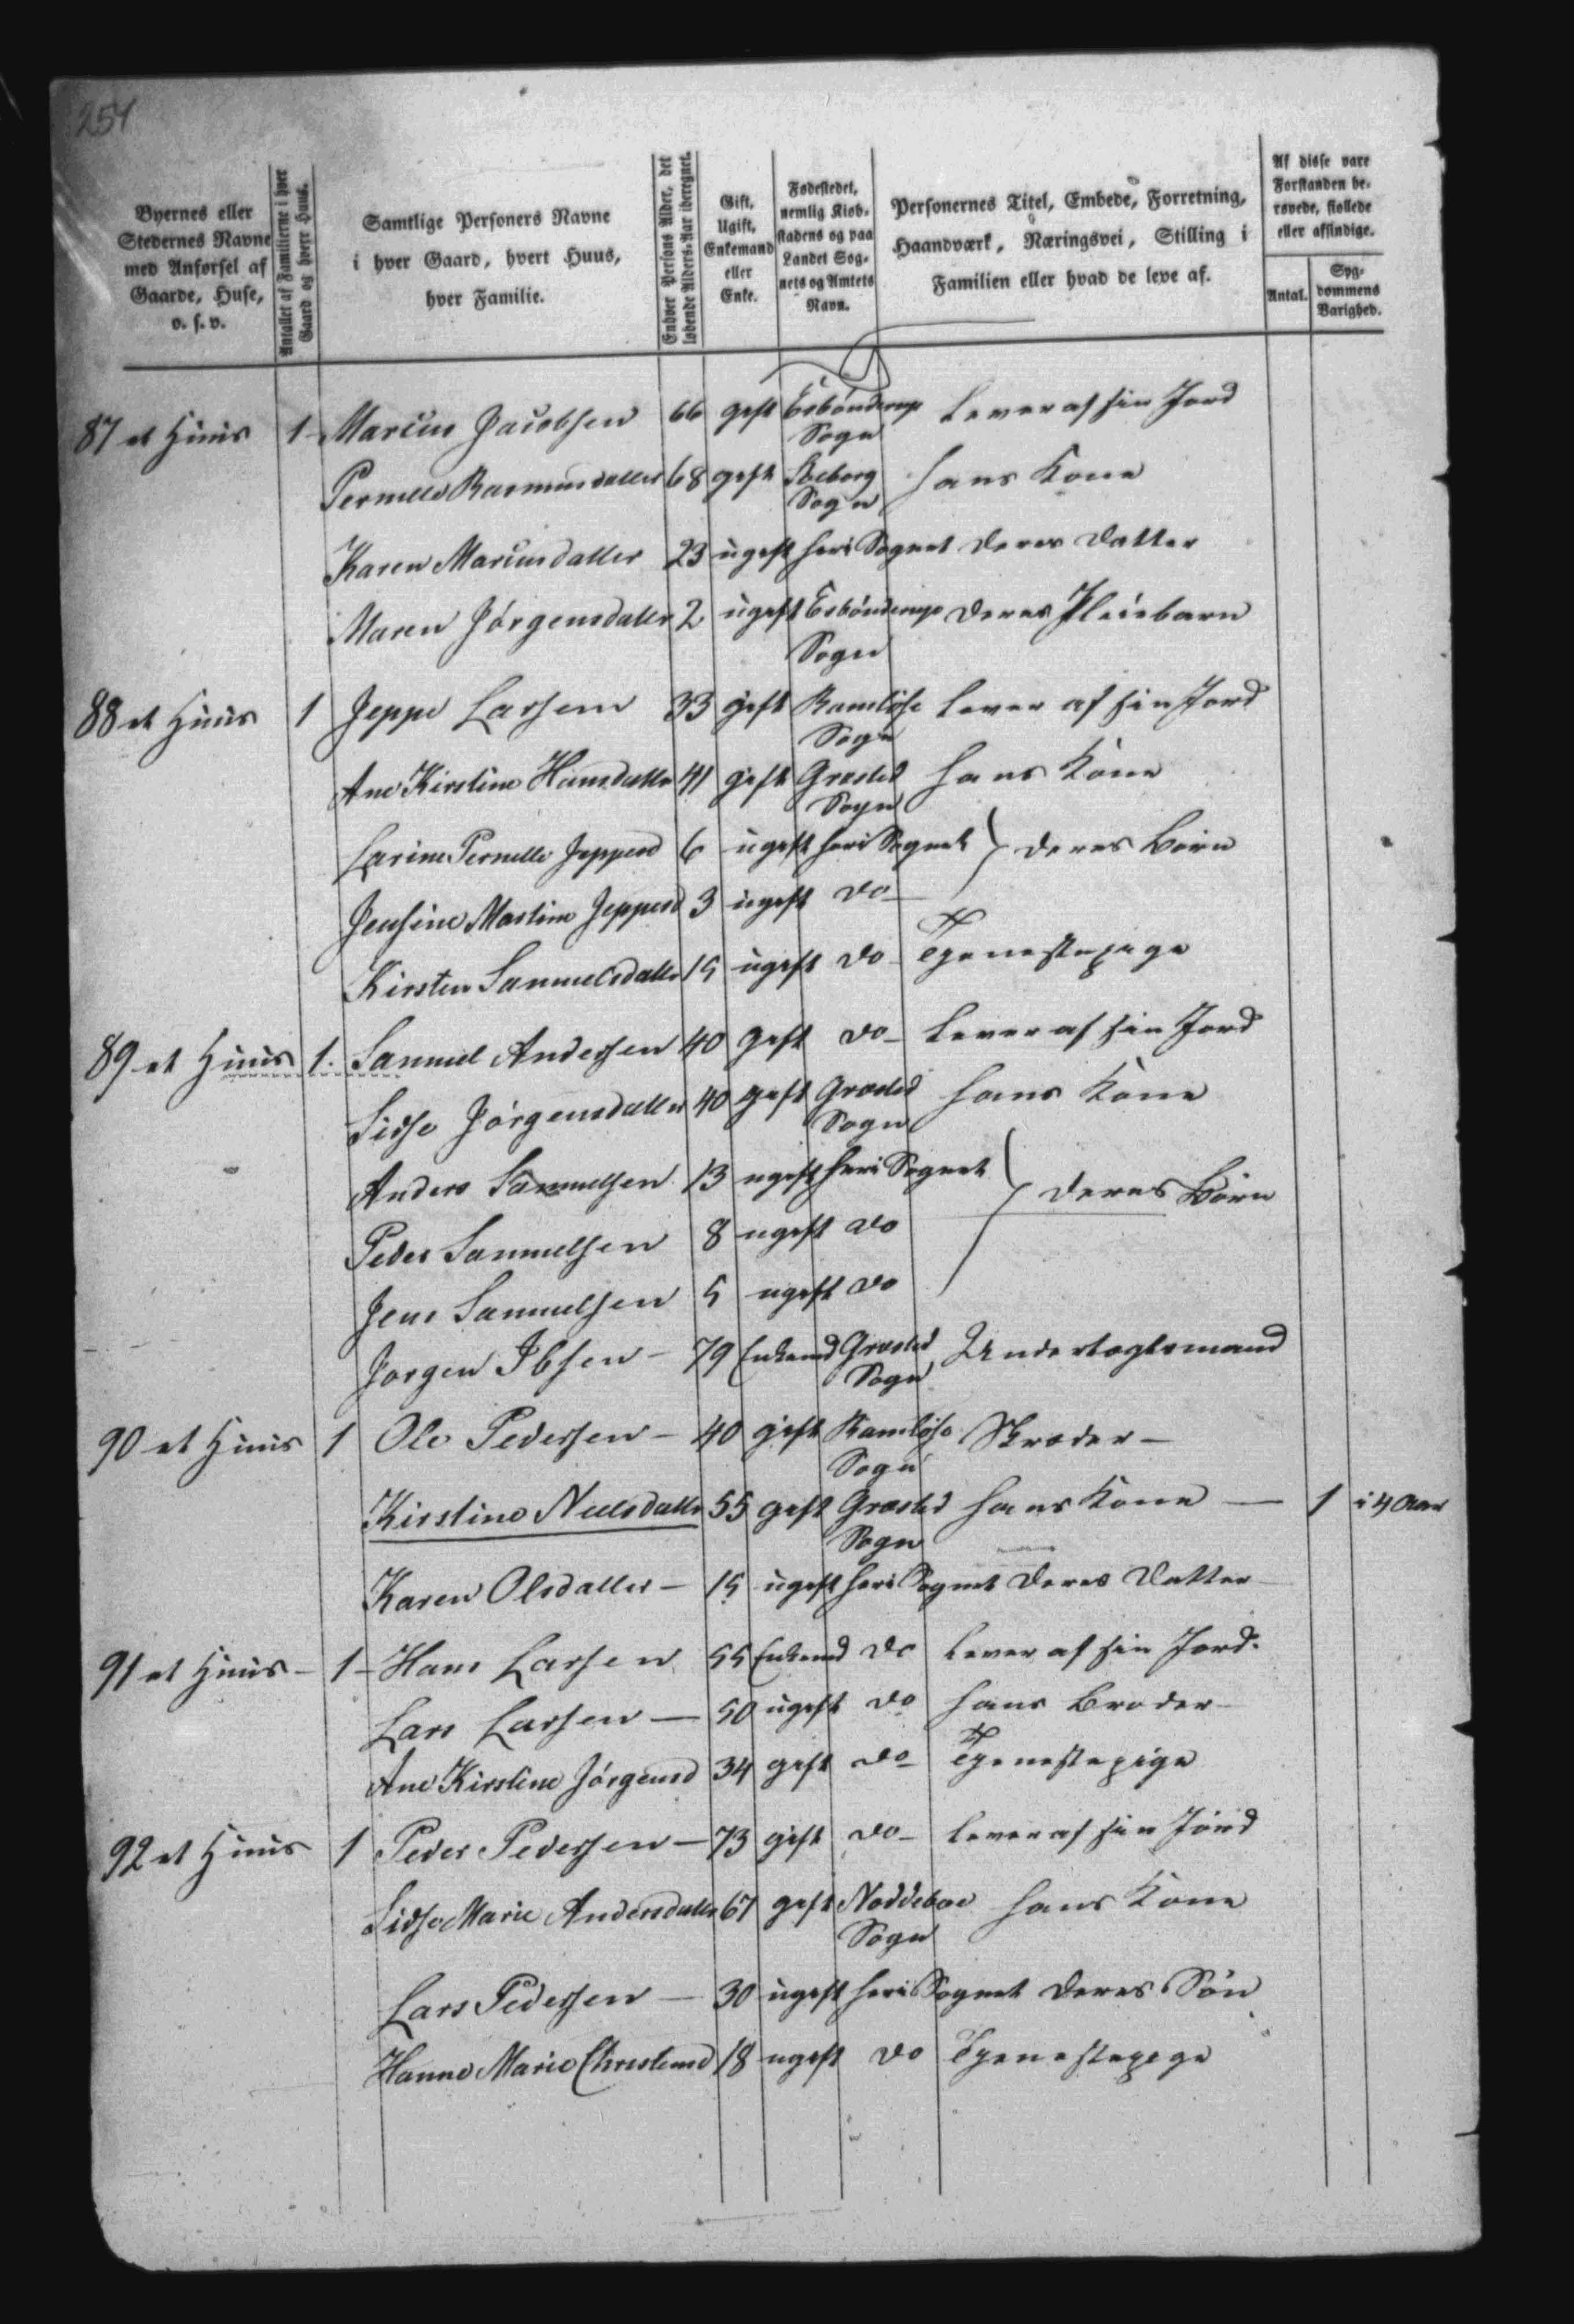 254
Byernes eller Stedernes Navne med Anførsel af Gaarde, Huse, o. s. v.
Antallet af Familierne i hver Gaard og hvert Huus.
Samtlige Personers Navne i hver Gaard, hvert Huus, hver Familie.
Enhver Persons Alder, det løbende Alders-Aar iberegnet.
Gift, Ugift, Enkemand eller Enke.
Fødestedet, nemlig Kiøbstadens og paa Landet Sognets og Amtets Navn.
Personernes Titel, Embede, Forretning, Haandværk, Næringsvei, Stilling i Familien eller hvad de leve af.
Af disse vare Forstanden berøvede, fiollede eller afsindige.
Antal.
Sygdommens Varighed.
87 et Huus 1 Marcus Jacobsen 66 gift Esbönderup Sogn Lever af sin Jord
Pernille Rasmusdatter 68 gift Söeborg Sogn hans Kone
Karen Marcusdatter 23 ugift her i Sognet deres Datter
Maren Jörgensdatter 2 ugift Esbönderup Sogn deres Pleiebarn
88 et Huus 1 Jeppe Larsen 33 gift Ramlöse Sogn Lever af sin Jord
Ane Kirstine Hansdatter 41 gift Græsted Sogn hans Kone
Larine Pernille Jeppesd 6 ugift her i Sognet } deres Börn
Jensine Martine Jeppesd 3 ugift do
Kirsten Samuelsdatter 15 ugift do Tjenestepige
89 et Huus 1. Samuel Andersen 40 gift do Lever af sin Jord
Sidse Jörgensdatter 40 gift Græsted Sogn hans Kone
Anders Samuelsen 13 ugift her i Sognet } deres Börn
Peder Samuelsen 8 ugift do
Jens Samuelsen 5 ugift do
Jørgen Ibsen 79 Enkemd Græsted Sogn Undertagtsmand
90 et Huus 1 Ole Pedersen 40 gift Ramlöse Sogn Skræder
Kirstine Nielsdatter 55 gift Græsted Sogn hans Kone 1 i 4 Aar
Karen Olsdatter 15 ugift her i Sognet deres Datter
91 et Huus 1 Hans Larsen 55 Enkemd do Lever af sin Jord.
Lars Larsen 50 ugift do hans Broder
Ane Kirstine Jörgensd 34 gift do Tjenestepige
92 et Huus 1 Peder Pedersen 73 gift do Lever af sin Jord
Sidse Marie Andersdatter 67 gift Nøddeboe Sogn hans Kone
Lars Pedersen 30 ugift her i Sognet deres Sön
Hanne Marie Christensd 18 ugift do Tjenestepige